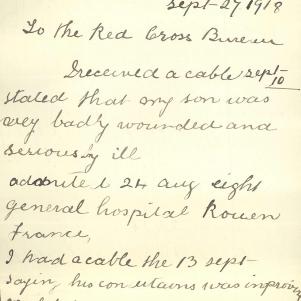 Sept-27 1918
To the Red Cross Bureau
I received a cable Sept-10
stated that my son was
very badly wounded and
seriously ill
admited 24 aug eight
general hospital Rouen
France,
I had a cable the 13 sept
sayin, his was improvin